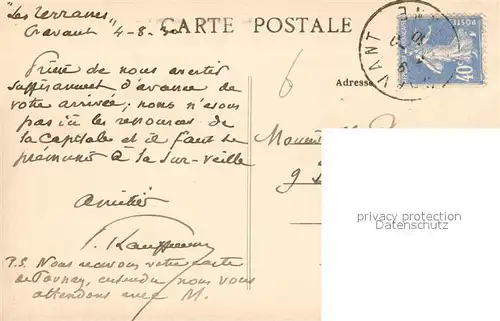 "Les Terrasses"
Cravant 4-8-30
CARTE POSTALE
Prière de nous avertir
suffisamment d'avance de
votre arrivée; nous n'avons
pas ici les ressources de
la Capitale et il faut se
prémunir à la sur-veille
Amitiés
P.S. Nous recevons votre carte
de Tournay, entendu nous vous
attendons avec M.
Adresse
Monsieur
9
6
POSTES
40
VANT
privacy protection
Datenschutz